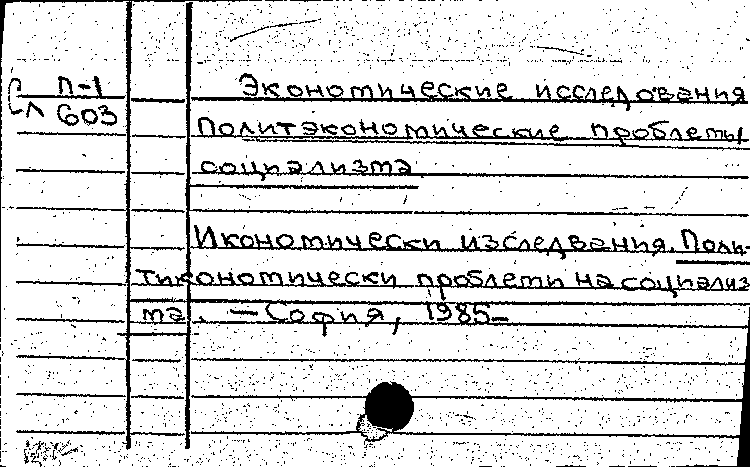 П-1 Экономические исследования
Сл 603 Политэкономические проблемы
социализма
Икономически изследвания. Поли-
тикономически проблеми на социализ
ма. — София, 1985–